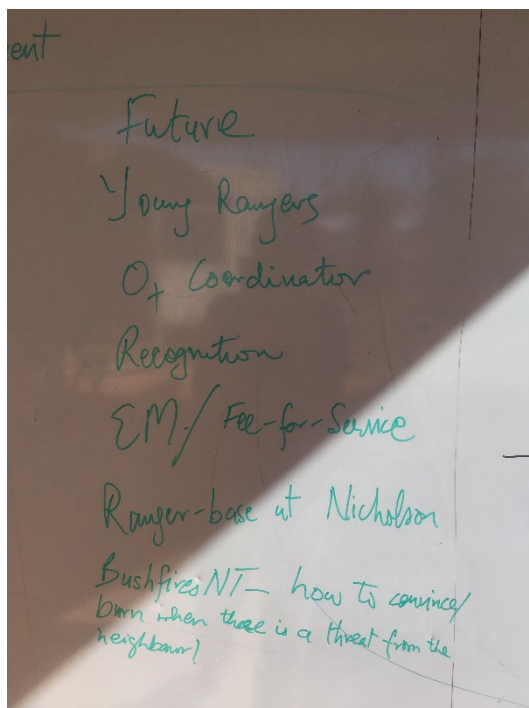 ent
Future
Young Rangers
O+ Coordinator
Recognition
EM/ Fee-for-Service
Ranger-base at Nicholson
Bushfires NT – how to convince/
burn when there is a threat from the
neighbour?